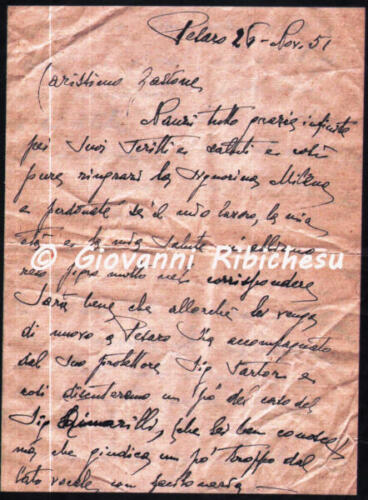 Pesaro 26 - Nov. 51
Carissimo Zastone
Nanzi tutto grazie infinite
pei Suoi scritti e saluti e così
pure ringrazi la Signorina Milena
e perdonate se il mio lavoro, la mia
età e la mia salute mi abbiano
reso pigro molto nel corrispondere
© Giovanni Ribichesu
Sarà bene che allorchè lei venga
di nuovo a Pesaro sia accompagnato
dal Suo protettore Sig. Sartori e
così discuteremo un pò del caso del
Sig. che lei ben conosce
ma, che giudica un pò troppo dal
lato vocale con